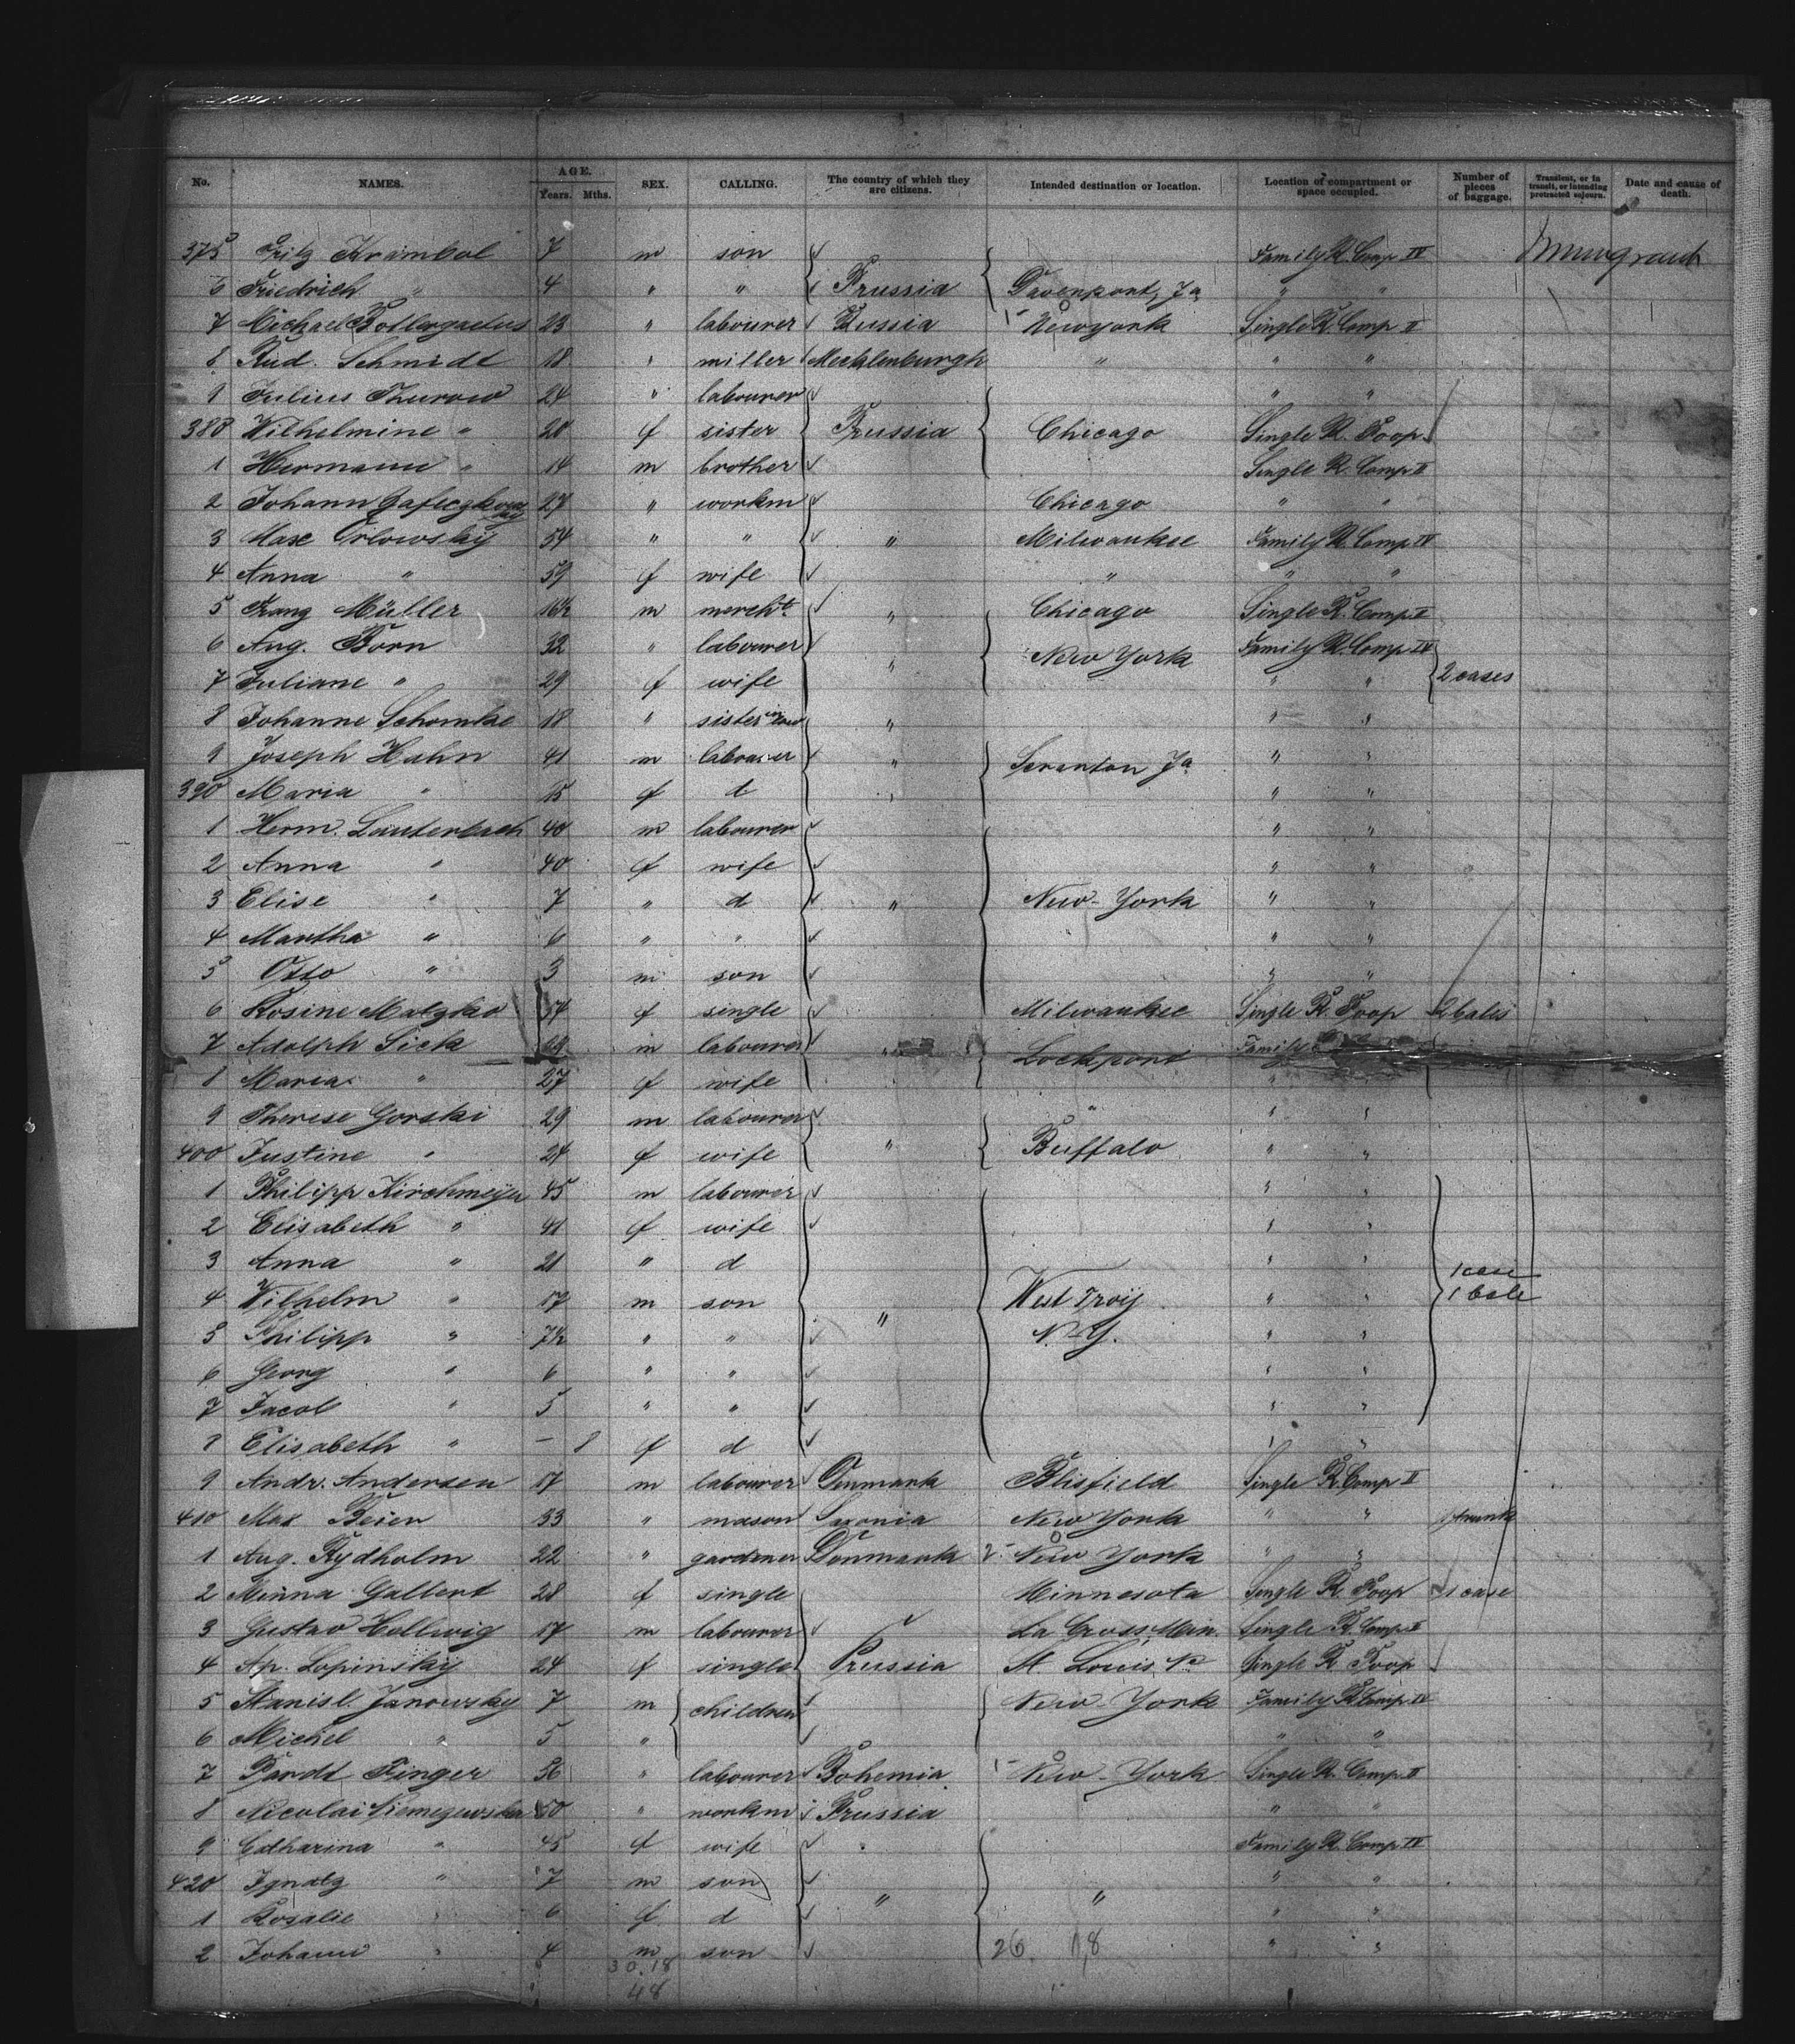 No. NAMES. AGE. Years. Mths. SEX. CALLING. The country of which they are citizens. Intended destination or location. Location of compartment or space occupied. Number of pieces of baggage. Transient, or in transit, or intending protracted sojourn. Date and cause of death.
375 Fritz m son Family R. Comp IV
6 Friedrich " 4 " " Prussia Davenport, Ja " "
7 Michael 23 " labourer Russia New york Single R. Comp II
8 Rud. Schmidt 18 " miller Mecklenburgh " " "
9 Julius Thurow 24 " labourer " "
380 Wilhelmine " 20 f sister Prussia Chicago Single R. Poop
1 Hermann " 14 m brother Single R. Comp II
2 Johann 27 " workm Chicago " "
3 Max Orlowsky 54 " " " Milwaukee Family R. Comp IV
4 Anna " 59 f wife " " "
5 Franz Müller 16½ m mercht. " Chicago Single R. Comp II
6 Aug. Born 32 " labourer " New York Family R. Comp IV
7 Juliane " 29 f wife " " 2 cases
8 Johanne Schomke 18 " sister in law " " "
9 Joseph Hahn 41 m labourer " Scranton " "
390 Maria " 15 f d " " "
1 Herm. Lauterbach 40 m labourer " "
2 Anna " 40 f wife " "
3 Elise " 7 " d " New-York " "
4 Martha " 6 " " " "
5 Otto " 3 m son " "
6 Rosine Malzko 34 f single Milwaukee Single R. Poop 2 bales
7 Adolph Sick m labourer " Lockport Family
8 Maria " 27 f wife "
9 Therese Gorski 29 m labourer " " "
400 Justine " 24 f wife " Buffalo " "
1 Philipp Kirchmeijer 45 m labourer " "
2 Elisabeth " 41 f wife " "
3 Anna " 21 " d " "
4 Wilhelm " 17 m son " West Troy " " 1 case 1 bale
5 Philipp " 7½ " " N.Y. " "
6 Georg " 6 " " " "
7 Jacob " 5 " " " "
8 Elisabeth " – 8 f d " "
9 Andr. Andersen 17 m labourer Denmark Blisfield Single R. Comp II
410 Max Beier 33 " mason Saxonia New York " " 1 trunk
1 Aug. Rydholm 22 " gardener Denmark New York " "
2 Minna Gallert 28 f single Minnesota Single R. Poop 1 case
3 Gustav Hellwig 17 m labourer La Cross Single R. Comp II
4 Ap. Lopinsky 24 f single Prussia St. Louis Single R Poop
5 Stanisl. Janowsky 7 m children New-York Family R. Comp IV
6 Michel " 5 " " "
7 Finger 56 " labourer Bohemia New-York Single R. Comp II
8 Nicolai 50 " workm Prussia " "
9 Catharina " 45 f wife " Family R. Comp IV
420 Ignatz " 7 m son " " " "
1 Rosalie " 6 f d " "
2 Johann " 4 m son 26 " "
30.18
48